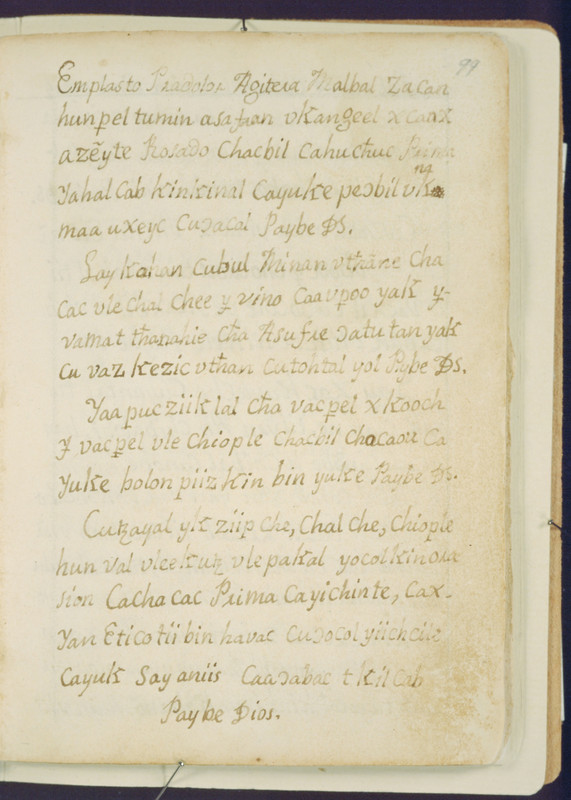 99
Emplasto Pradolor Agitera Malbal Zacan
hunpel tumin asafran vkangeel x caax
azẽyte Rosado Chacbil Cahuchuc Prima
Yahal Cab kinkinal Cayuke peɔbil vk
na
maa uxeyc Cuɔacal Paybe DS.
Lay kohan Cubul Minan vthane Cha
Cac vle chal Chee y vino Caavpoo yak y-
vamat thanahie Cha Asufre ɔatu tan yak
Cu vaz kezic vthan Cutohtal yol Paybe DS.
Yaa pucziik lal Cha vacpel x kooch
y vacpel vle Chiople Chacbil Chacaou Ca
Yuke bolon piiz kin bin yuke Paybe DS.
Cutzayal yk ziip che, Chal che, Chiople
hun Val vleekutz vle pakal yocolkin ora
sion Cachacac Prima Cayichinte, Cax-
Yan Etico tii bin havac Cuɔocol yiichciil
Cayuk Sayaniis Caaɔabac t kil Cab
Paybe Dios.